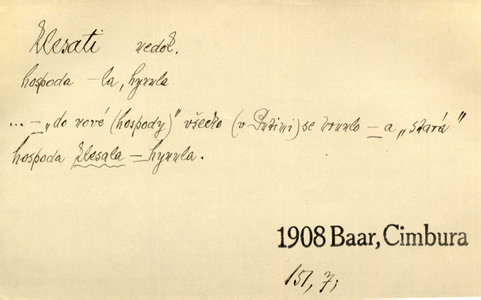 klesati nedok.
hospoda –la, hynula
... – „do nové (hospody)" všecko (v Putimi) se hrnulo – a „stará"
hospoda klesala – hynula.
1908 Baar, Cimbura
151, 7;